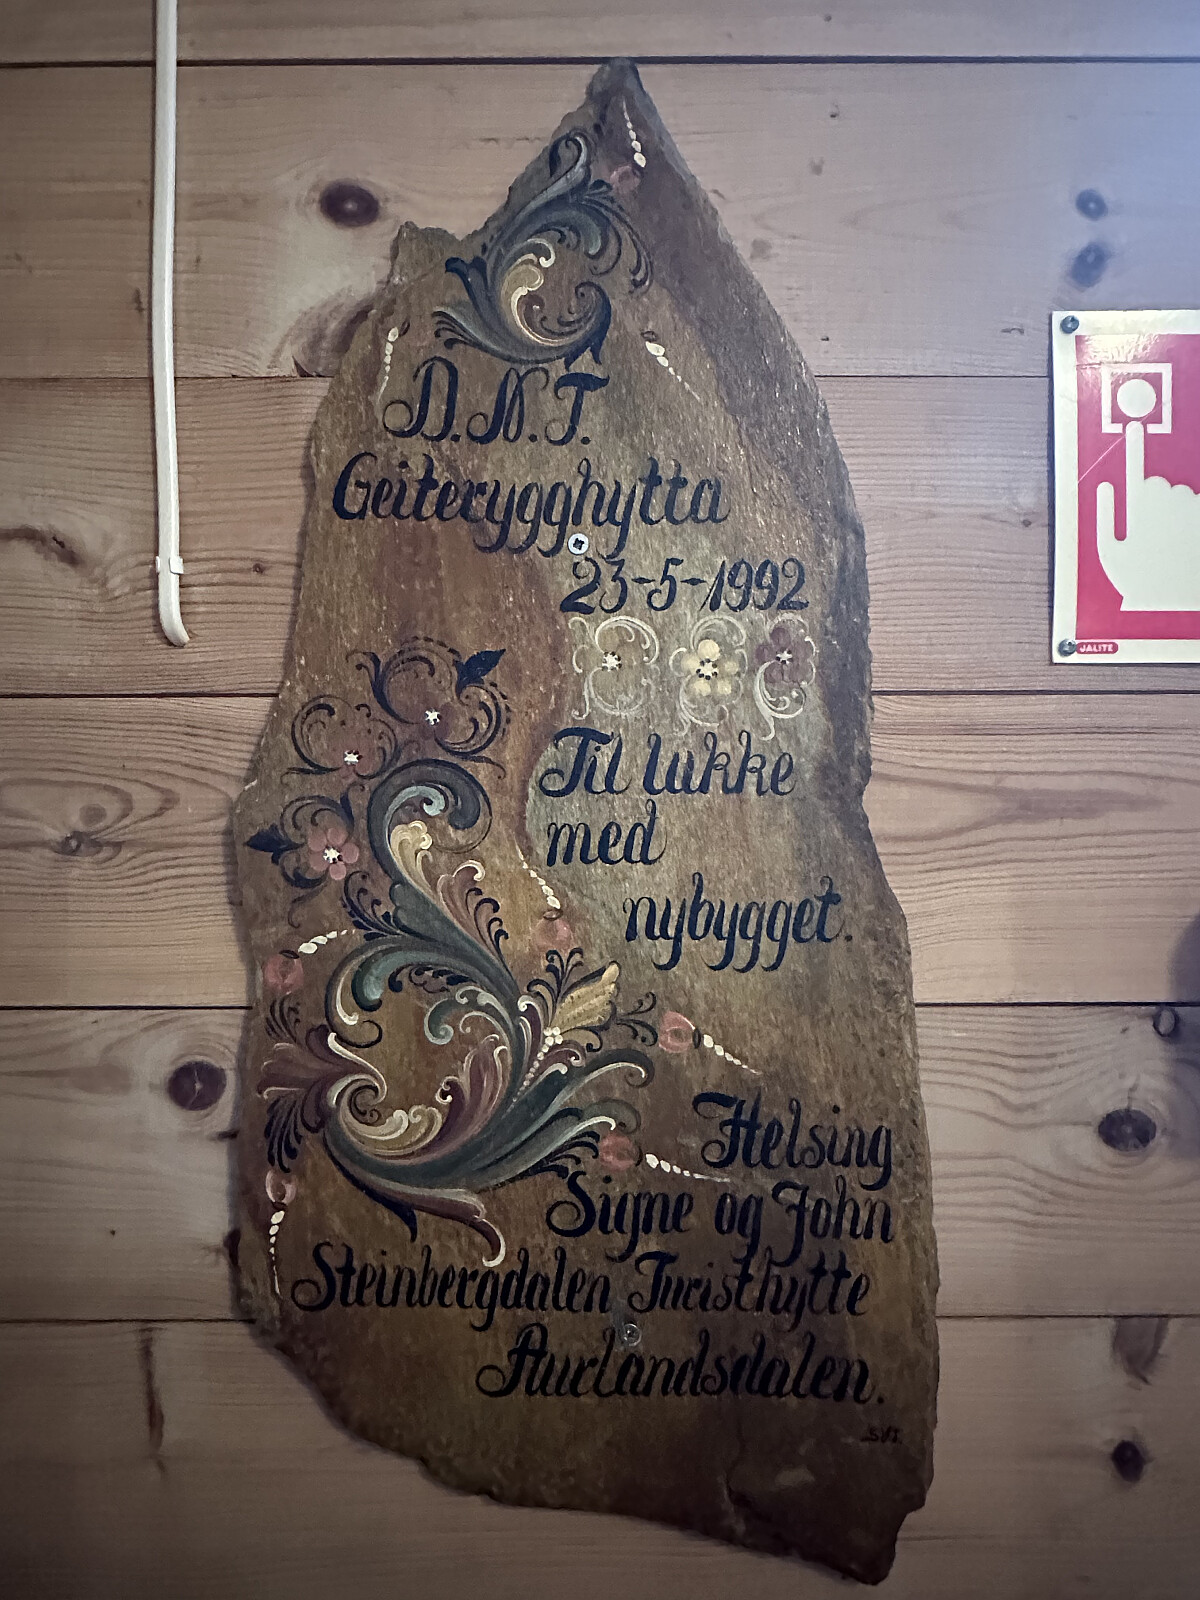 D.N.T.
Geiterygghytta
23-5-1992
Til lukke
med
nybygget.
Helsing
Signe og John
Steinbergdalen Turisthytte
Aurlandsdalen.
JALITE